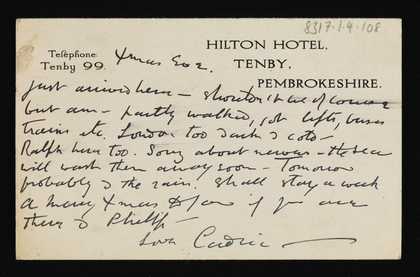 8317.1.4.108
HILTON HOTEL.
Telephone: Xmas Eve.
Tenby 99. TENBY,
PEMBROKESHIRE.
Just arrived here – shouldn't be of course
but am – partly walked, got lifts, buses
trains etc. London too dark & cold –
Ralph here too. Sorry about – the sea
will wash them away soon – Tomorrow
probably & the rain. Shall stay a week
A Merry Xmas to you if you are
there & Phelps –
Love Cedric